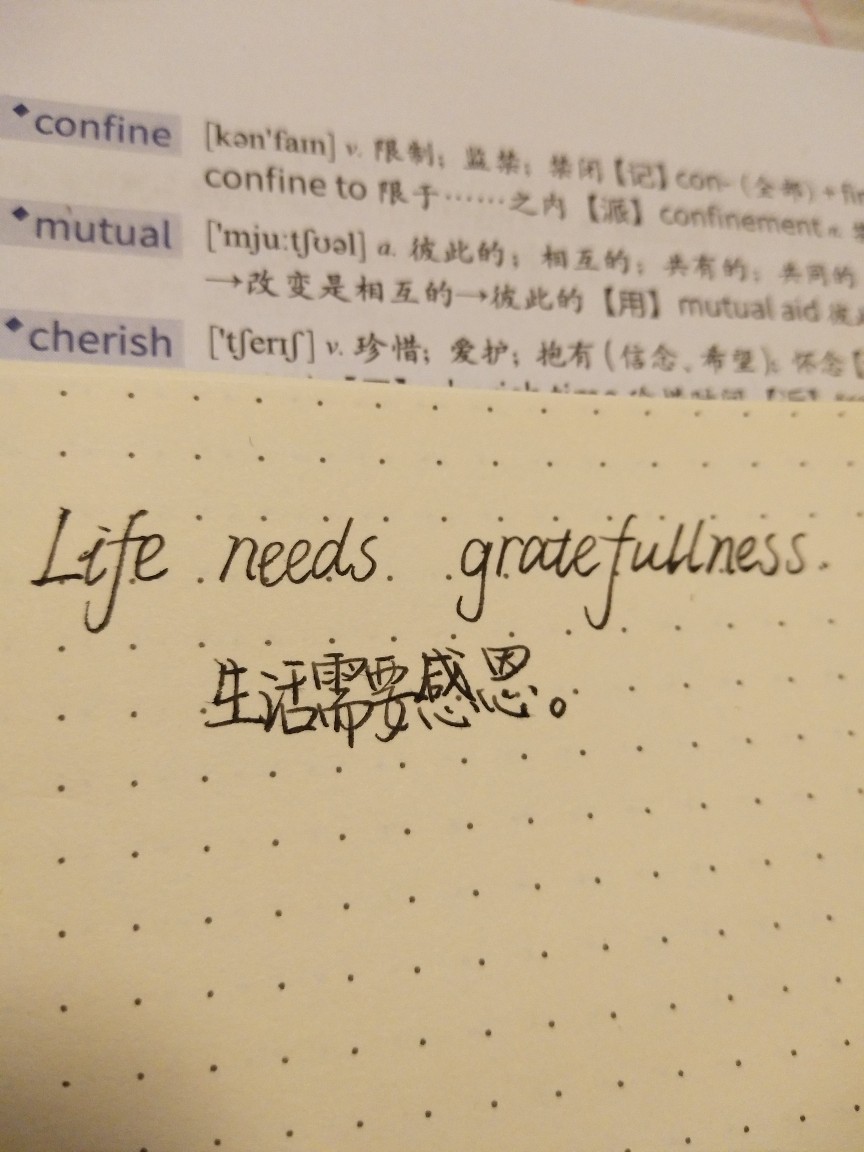 confine [kən'faɪn] v. 限制；监禁；禁闭【记】con-（全部）+fin
confine to 限于……之内【派】confinement n.
mutual ['mju:tʃʊəl] a. 彼此的；相互的；共有的；共同的
→改变是相互的→彼此的【用】mutual aid
cherish ['tʃerɪʃ] v. 珍惜；爱护；抱有（信念、希望）；怀念【
Life needs gratefullness.
生活需要感恩。